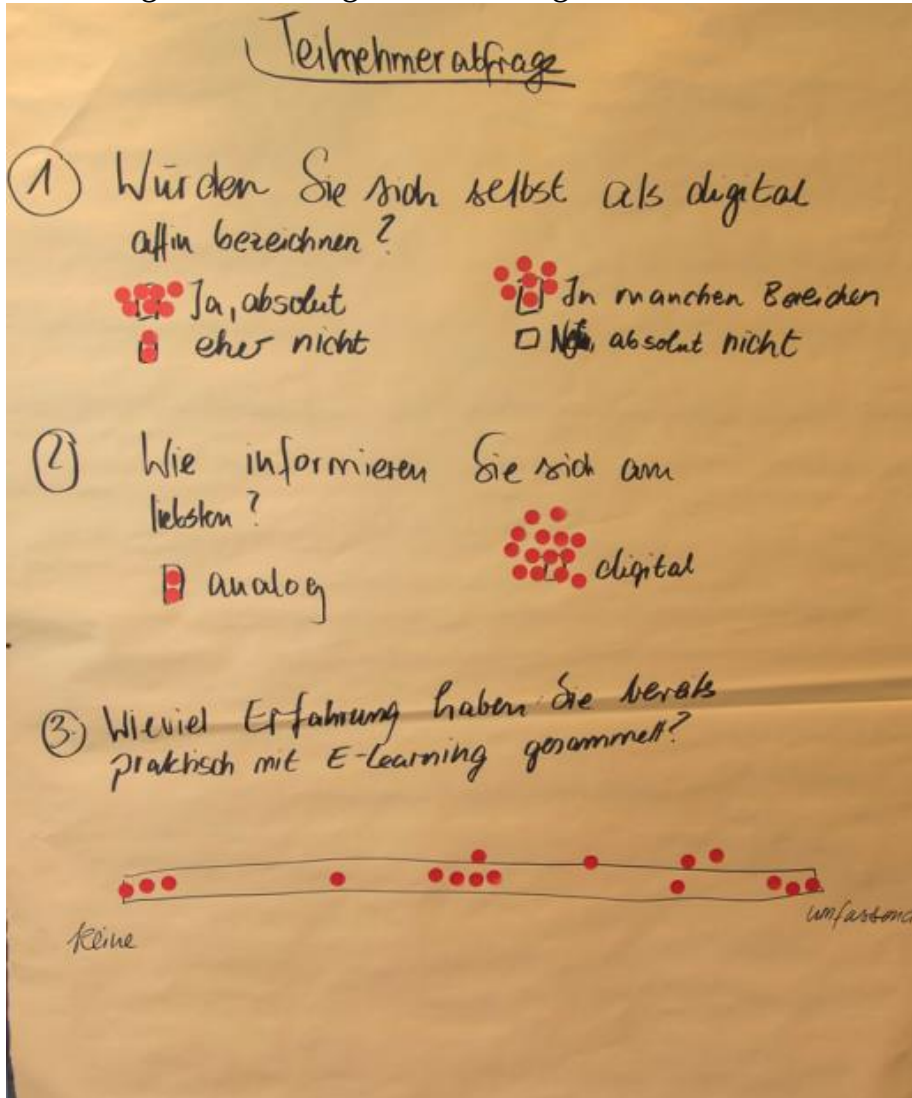 Teilnehmerabfrage
1 Würden Sie sich selbst als digital
affin bezeichnen?
Ja, absolut
In manchen Bereichen
eher nicht
absolut nicht
2 Wie informieren Sie sich am
liebsten?
analog
digital
3. Wieviel Erfahrung haben Sie bereits
praktisch mit E-Learning gesammelt?
keine
umfassend